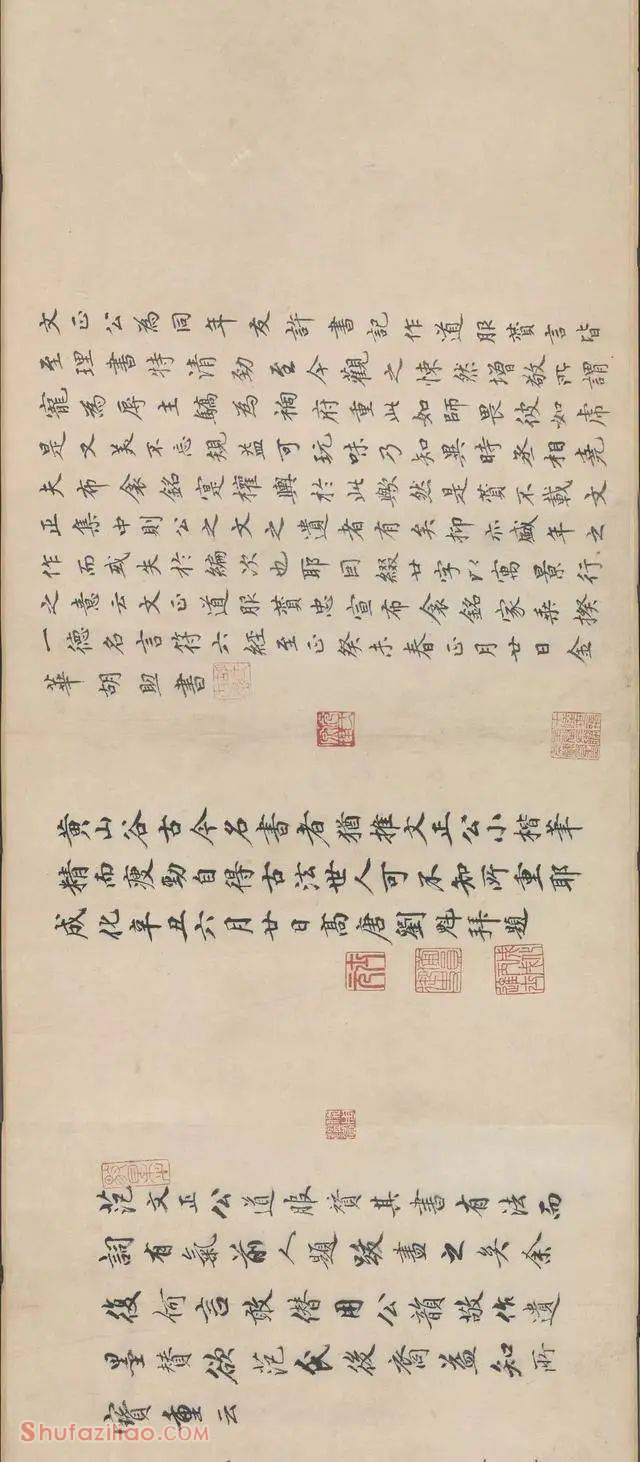 文正公為同年友許書記作道服贊言皆
至理書特清勁至今觀之悚然增敬所謂
寵為辱主驕為禍府重此如師畏彼如虎
是又美不忘規益可玩味乃知異時丞相堯
夫布衾銘寔權輿於此歟然是贊不載文
正集中則公之文之遺者有矣抑亦盛年之
作而或失於編次也耶因綴廿字以寓景行
之意云文正道服贊忠宣布衾銘家乘揆
一德名言符六經至正癸未春正月廿日金
華胡助書
黃山谷古今名書者猶推文正公小楷筆
精而瘦勁自得古法世人可不知所重耶
成化辛丑六月廿日高唐劉魁拜題
范文正公道服贊其書有法而
詞有氣前人題跋盡之矣余
復何言敢僭用公韻敬作遺
墨贊欲范氏後裔益知所
寶重云
Shufaziliao.com